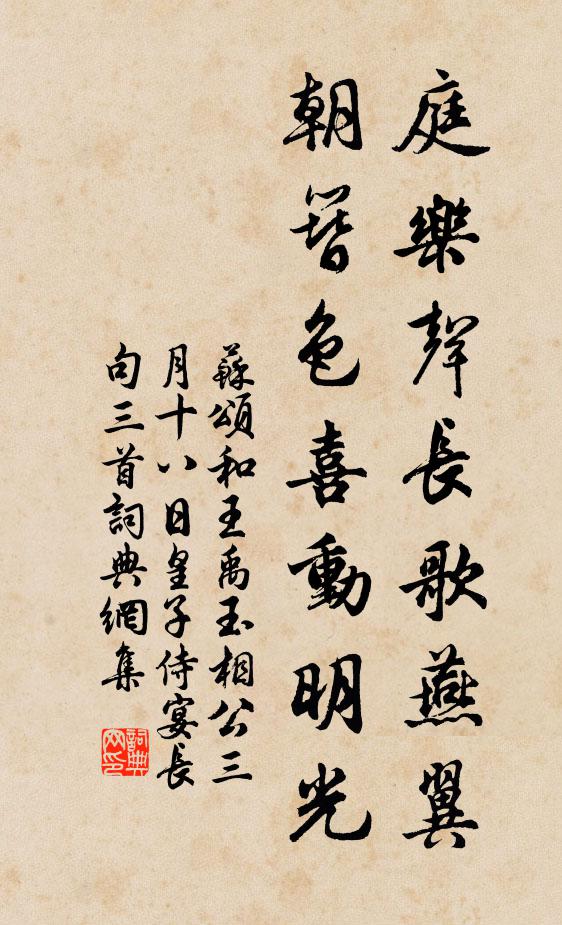 庭樂聲長歌燕翼
朝簪色喜動明光
蘇頌和王禹玉相公三
月十八日皇子侍宴長
句三首詞典網集
詞典
网印